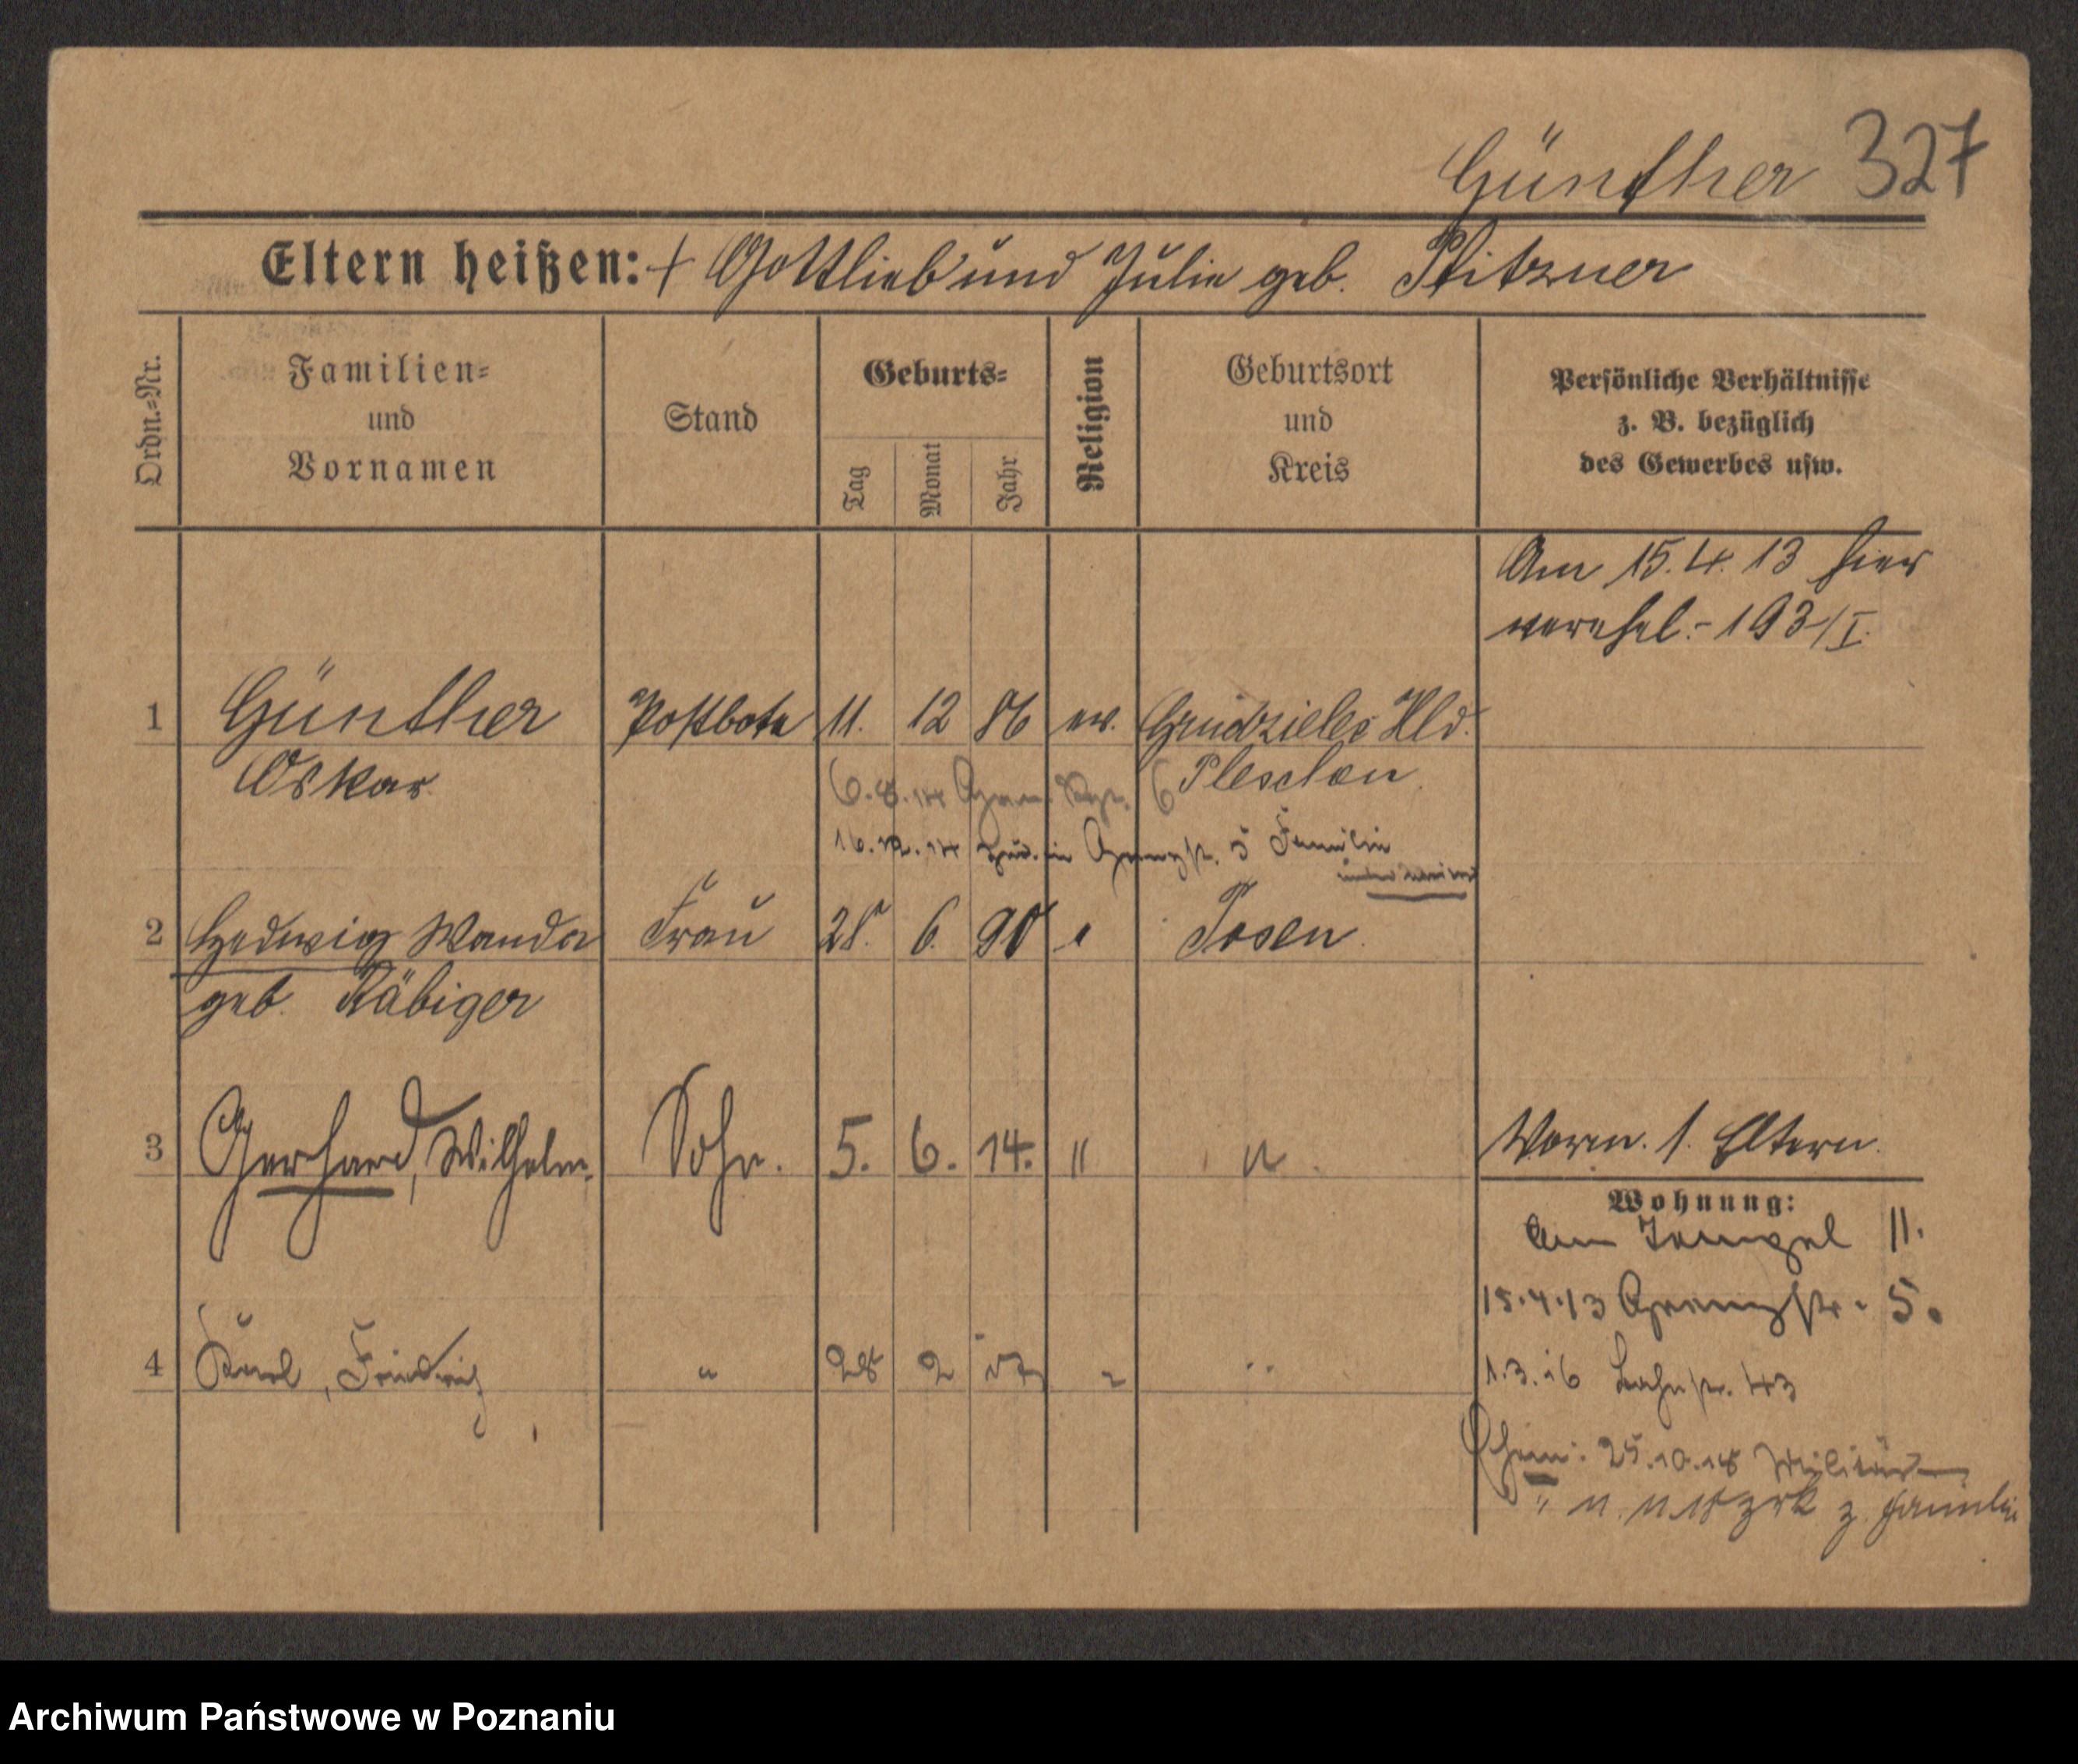 Günther 327
Eltern heißen: + Gottlieb und Julie geb. Pfitzner
Ordn.-Nr.
Familien-
und
Vornamen
Stand
Geburts-
Tag
Monat
Jahr
Religion
Geburtsort
und
Kreis
Persönliche Verhältnisse
z. B. bezüglich
des Gewerbes usw.
Am 15.4.13 hier
verehel. - 193/I.
1 Günther Postbote 11. 12 86 ev. Grudzielec Hld.
Oskar Pleschen
6.8.14 6
16.12.14 in 5 Familie
2 Hedwig Wanda Frau 28. 6. 90 " Posen
geb. Räbiger
3 Gerhard, Wilhelm. Sohn. 5. 6. 14. " "
Vorm. s. Eltern.
Wohnung:
Am 11.
15.4.13 Grenzstr. 5.
4 Karl, Friedrich " 28 2 17 " "
1.3.16 43
25.10.18 Militär
" zrk z. Familie
Archiwum Państwowe w Poznaniu